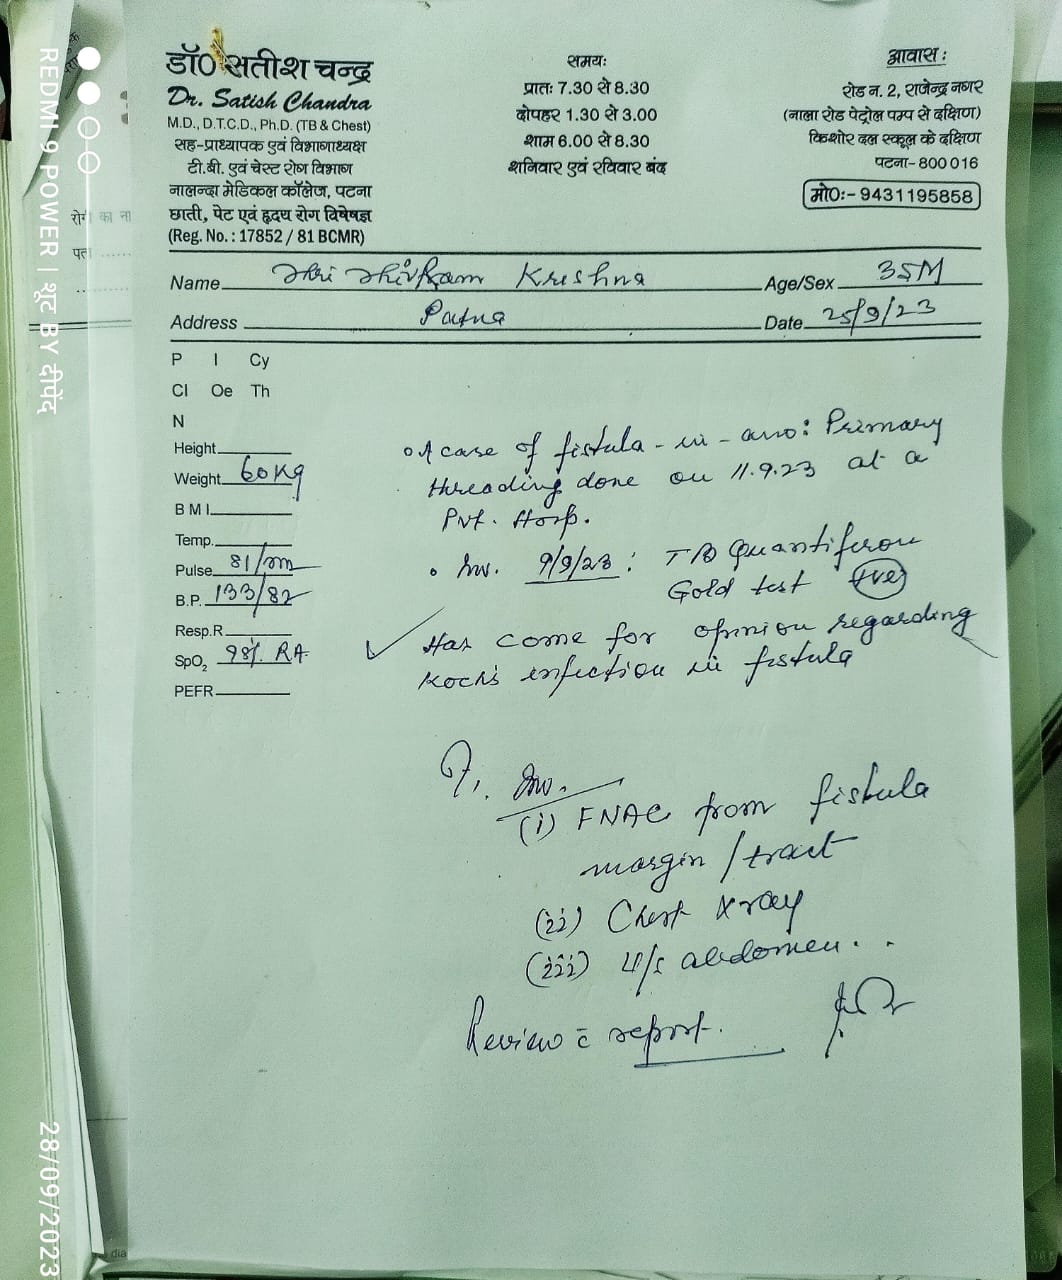 डॉ0 सतीश चन्द्र
Dr. Satish Chandra
M.D., D.T.C.D., Ph.D. (TB & Chest)
सह-प्राध्यापक एवं विभागाध्यक्ष
टी.बी. एवं चेस्ट रोग विभाग
नालन्दा मेडिकल कॉलेज, पटना
छाती, पेट एवं हृदय रोग विषेषज्ञ
(Reg. No. : 17852 / 81 BCMR)
समय:
प्रातः 7.30 से 8.30
दोपहर 1.30 से 3.00
शाम 6.00 से 8.30
शनिवार एवं रविवार बंद
आवास :
रोड न. 2, राजेन्द्र नगर
(नाला रोड पेट्रोल पम्प से दक्षिण)
किशोर दल स्कूल के दक्षिण
पटना- 800 016
मो0:- 9431195858
Name Shri Shivram Krishna Age/Sex 35M
Address Patna Date 25/9/23
P I Cy
Cl Oe Th
N
Height
Weight 60 Kg
B M I
Temp.
Pulse 81/m
B.P. 133/82
Resp.R
SpO₂ 98% RA
PEFR
A case of fistula-in-ano: Primary
threading done on 11.9.23 at a
Pvt. Hosp.
Inv. 9/9/23 : TB Quantiferon
Gold test +ve
Has come for opinion regarding
Koch's infection in fistula
Inv.
(i) FNAC from fistula
margin / tract
(ii) Chest Xray
(iii) U/S abdomen
Review c̄ report.
रोगी का ना
पता
REDMI 9 POWER | शूट BY दीपेंद्र
28/09/2023